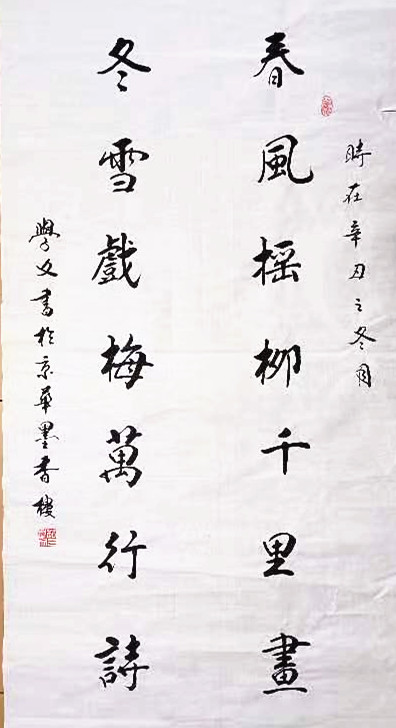 時在辛丑之冬月
春風摇柳千里畫
冬雪戲梅萬行詩
學文書於京華墨香樓